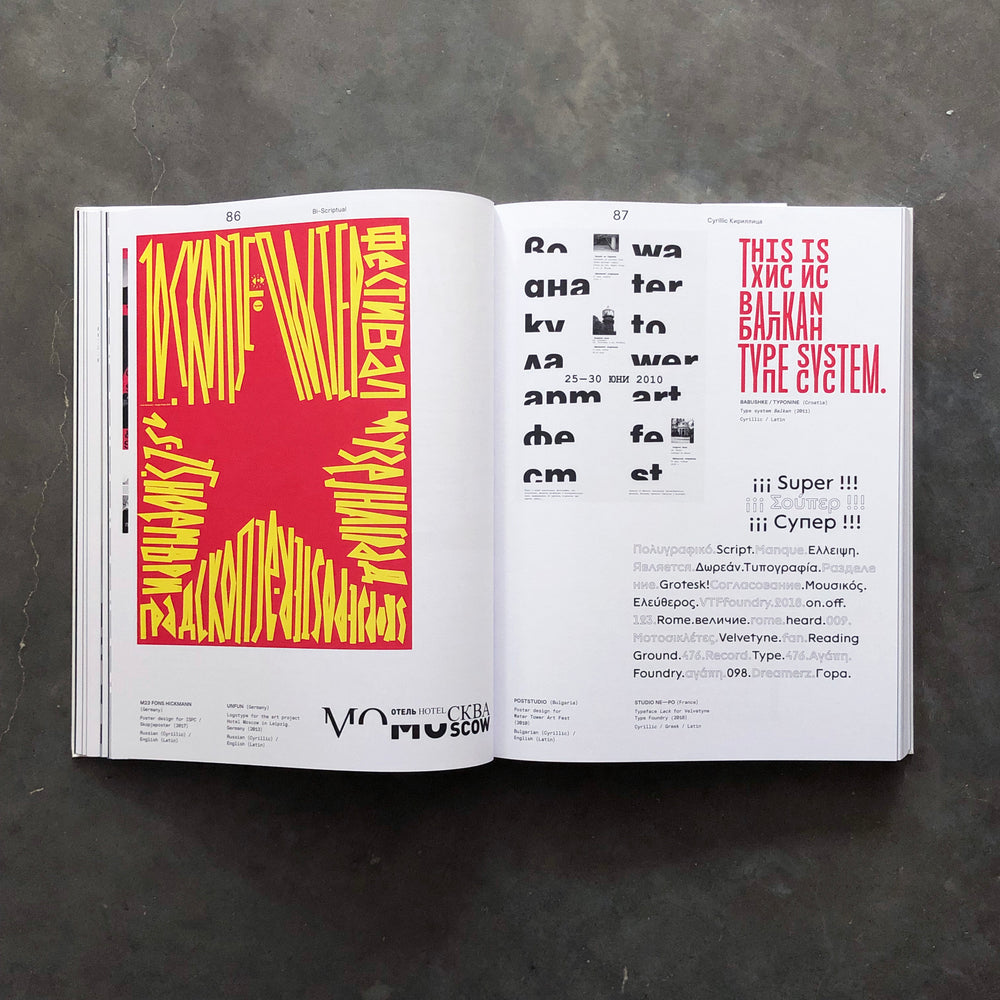 86
Bi-Scriptual
ФЕСТИВАЛ
M23 FONS HICKMANN
(Germany)
Poster design for ISPC /
Skopjeposter (2017)
Russian (Cyrillic) /
English (Latin)
UNFUN (Germany)
Logotype for the art project
Hotel Moscow in Leipzig,
Germany (2013)
Russian (Cyrillic) /
English (Latin)
ОТЕЛЬ HOTEL
МОСКВА
MOSCOW
87
Cyrillic Кириллица
во wa
дна ter
ку to
ла wer
25—30 ЮНИ 2010
арт art
фе fe
ст st
THIS IS
ХИС ИС
BALKAN
БАЛКАН
TYPE SYSTEM.
ТYПЕ СYСТЕМ.
BABUSHKE / TYPONINE (Croatia)
Type system Balkan (2011)
Cyrillic / Latin
¡¡¡ Super !!!
¡¡¡ Σούπερ !!!
¡¡¡ Супер !!!
Πολυγραφικό.Script.Manque.Ελλειψη.
Является.Δωρεάν.Τυπογραφία.Разделе
ние.Grotesk!Согласование.Μουσικός.
Ελεύθερος.VTFfoundry.2018.on.off.
123.Rome.величие.rome.heard.009.
Μοτοσικλέτες.Velvetyne.fan.Reading
Ground.476.Record.Type.476.Αγάπη.
Foundry.αγάπη.098.Dreamerz.Гора.
POSTSTUDIO (Bulgaria)
Poster design for
Water Tower Art Fest
(2010)
Bulgarian (Cyrillic) /
English (Latin)
STUDIO NE—PO (France)
Typeface Lack for Velvetyne
Type Foundry (2018)
Cyrillic / Greek / Latin